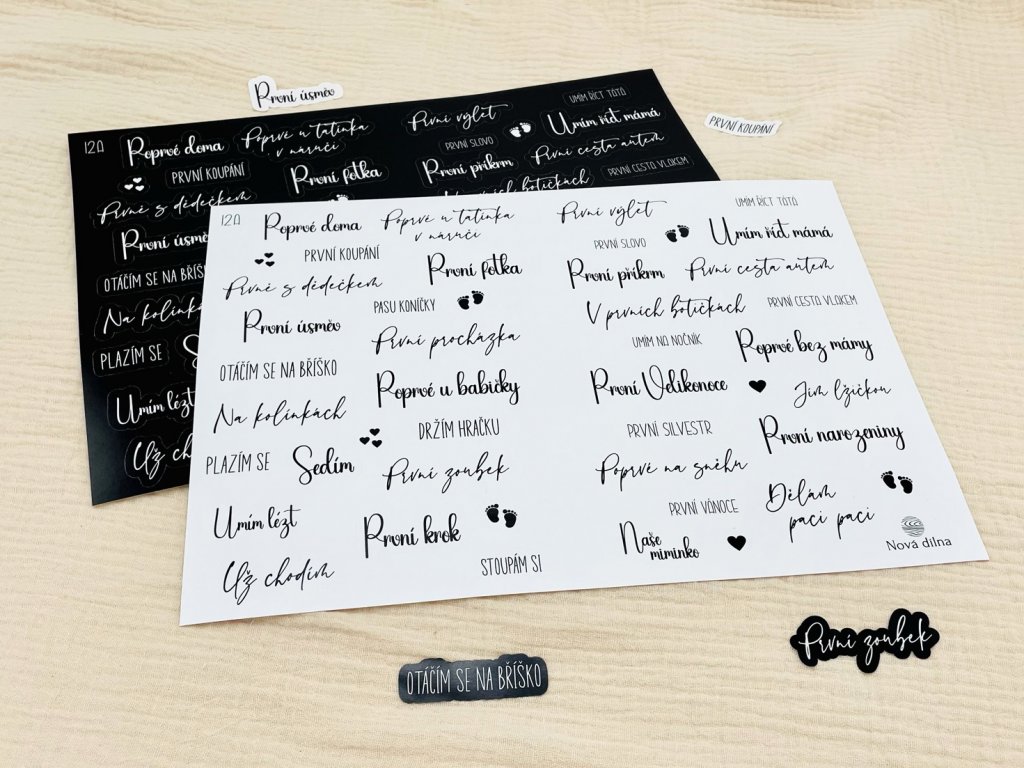 První úsměv
PRVNÍ KOUPÁNÍ
12A
Poprvé doma
Poprvé u tatínka
v náručí
První výlet
UMÍM ŘÍCT TÁTA
PRVNÍ KOUPÁNÍ
První fotka
PRVNÍ SLOVO
Umím říct máma
Prvně s dědečkem
První příkrm
První cesta autem
V prvních botičkách
PRVNÍ CESTA VLAKEM
První úsměv
OTÁČÍM SE NA BŘÍŠ
Na kolínk
PLAZÍM SE
S
Umím lézt
Už ch
12A
Poprvé doma
Poprvé u tatínka
v náručí
První výlet
UMÍM ŘÍCT TÁTA
PRVNÍ KOUPÁNÍ
PRVNÍ SLOVO
Umím říct máma
Prvně s dědečkem
První fotka
První příkrm
První cesta autem
PASU KONÍČKY
V prvních botičkách
PRVNÍ CESTA VLAKEM
První úsměv
První procházka
UMÍM NA NOČNÍK
Poprvé bez mámy
OTÁČÍM SE NA BŘÍŠKO
Poprvé u babičky
První Velikonoce
Jím lžičkou
Na kolínkách
DRŽÍM HRAČKU
PRVNÍ SILVESTR
První narozeniny
PLAZÍM SE
Sedím
První zoubek
Poprvé na sněhu
Umím lézt
První krok
PRVNÍ VÁNOCE
Dělám
paci paci
Už chodím
STOUPÁM SI
Naše
miminko
Nová dílna
První zoubek
OTÁČÍM SE NA BŘÍŠKO